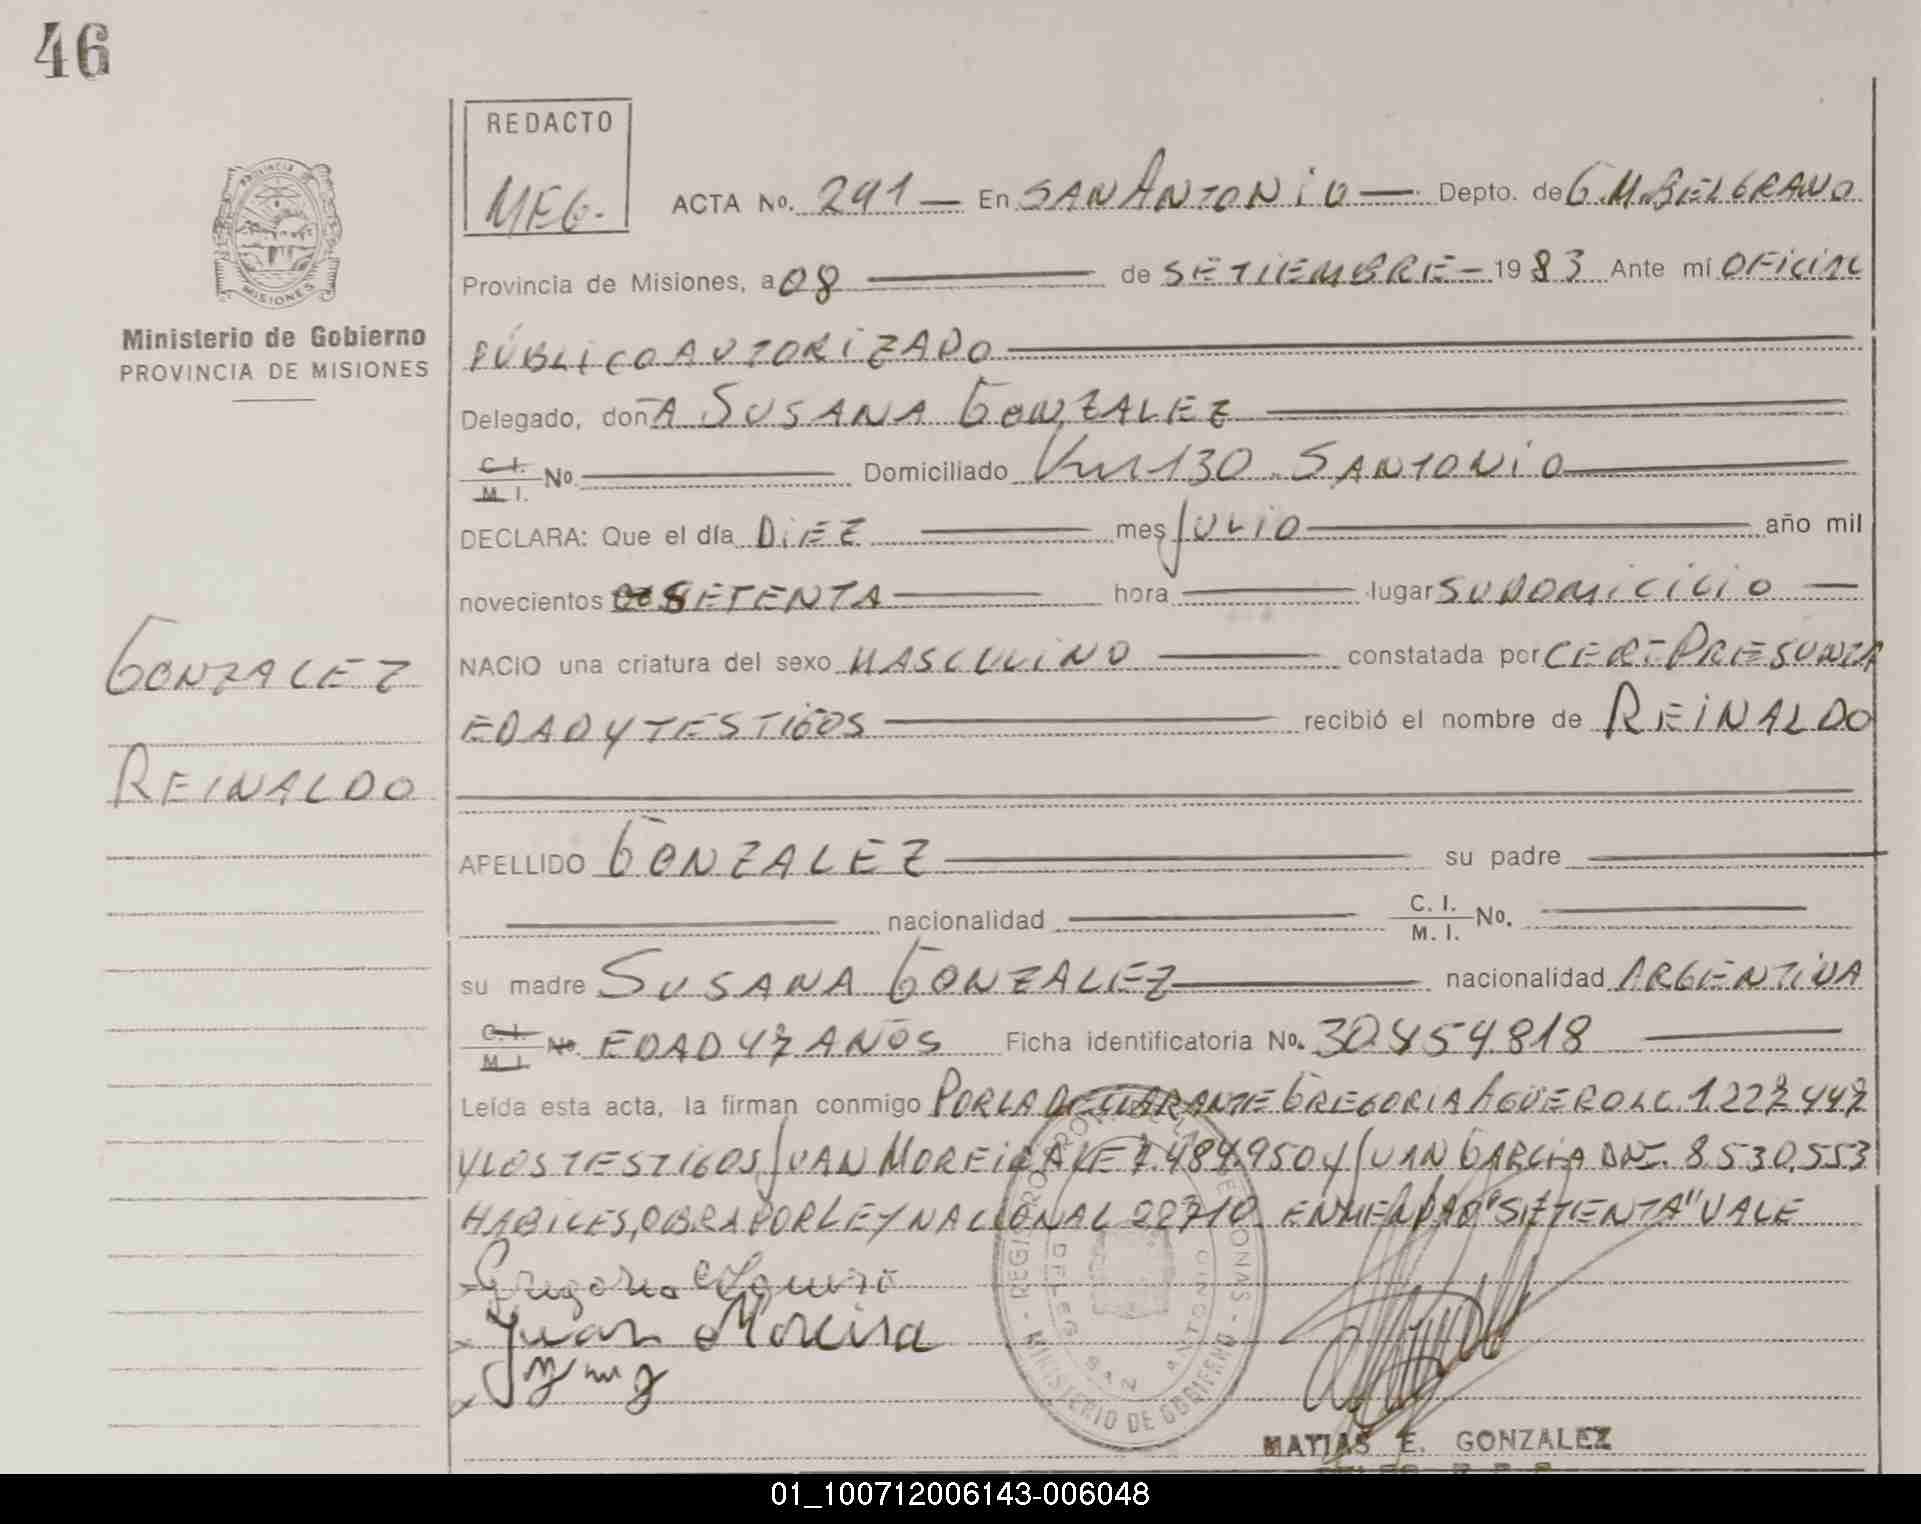 46
REDACTO
MEG.
ACTA No. 291 — En SAN ANTONIO — Depto. de G.M.BELGRANO
PROVINCIA DE MISIONES
Provincia de Misiones, a 08 — de SETIEMBRE — 1983 Ante mí OFICIAL
Ministerio de Gobierno
PROVINCIA DE MISIONES
PÚBLICO AUTORIZADO
Delegado, doñA SUSANA GONZALEZ
C. I. / M. I. No. — Domiciliado Km 130 SANTONIO
DECLARA: Que el día DIEZ — mes JULIO — año mil
novecientos SETENTA — hora — lugar SU DOMICILIO —
GONZALEZ
NACIO una criatura del sexo MASCULINO — constatada por CERT PRESUNTA
EDAD Y TESTIGOS — recibió el nombre de REINALDO
REINALDO
APELLIDO GONZALEZ — su padre —
— nacionalidad — C. I. / M. I. No. —
su madre SUSANA GONZALEZ — nacionalidad ARGENTINA
C. I. / M. I. No. EDAD 47 AÑOS Ficha identificatoria No. 30.454.818 —
Leída esta acta, la firman conmigo POR LA DECLARANTE GREGORIA AGÜERO L.C. 1.227.447
Y LOS TESTIGOS JUAN MOREIRA LE 7.484.950 Y JUAN GARCIA DNI. 8.530.553
HABILES, OBRA POR LEY NACIONAL 22710 ENMENDADO "SETENTA" VALE
Juan Moreira
REGISTRO PROVINCIAL DE LAS PERSONAS - MINISTERIO DE GOBIERNO -
DELEG SAN ANTONIO
MATIAS E. GONZALEZ
01_100712006143-006048